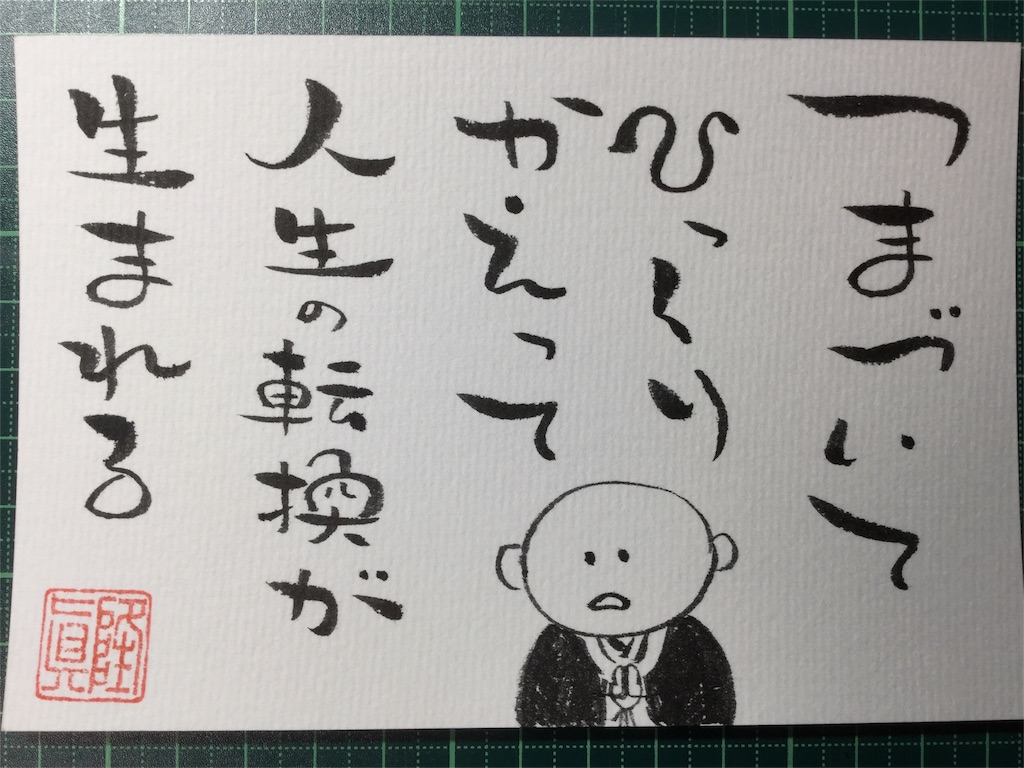 つまづいて
ひっくり
かえって
人生の転換が
生まれる